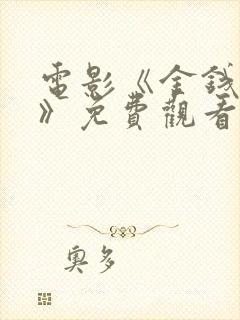 電影《金錢
》免費觀看
奧多